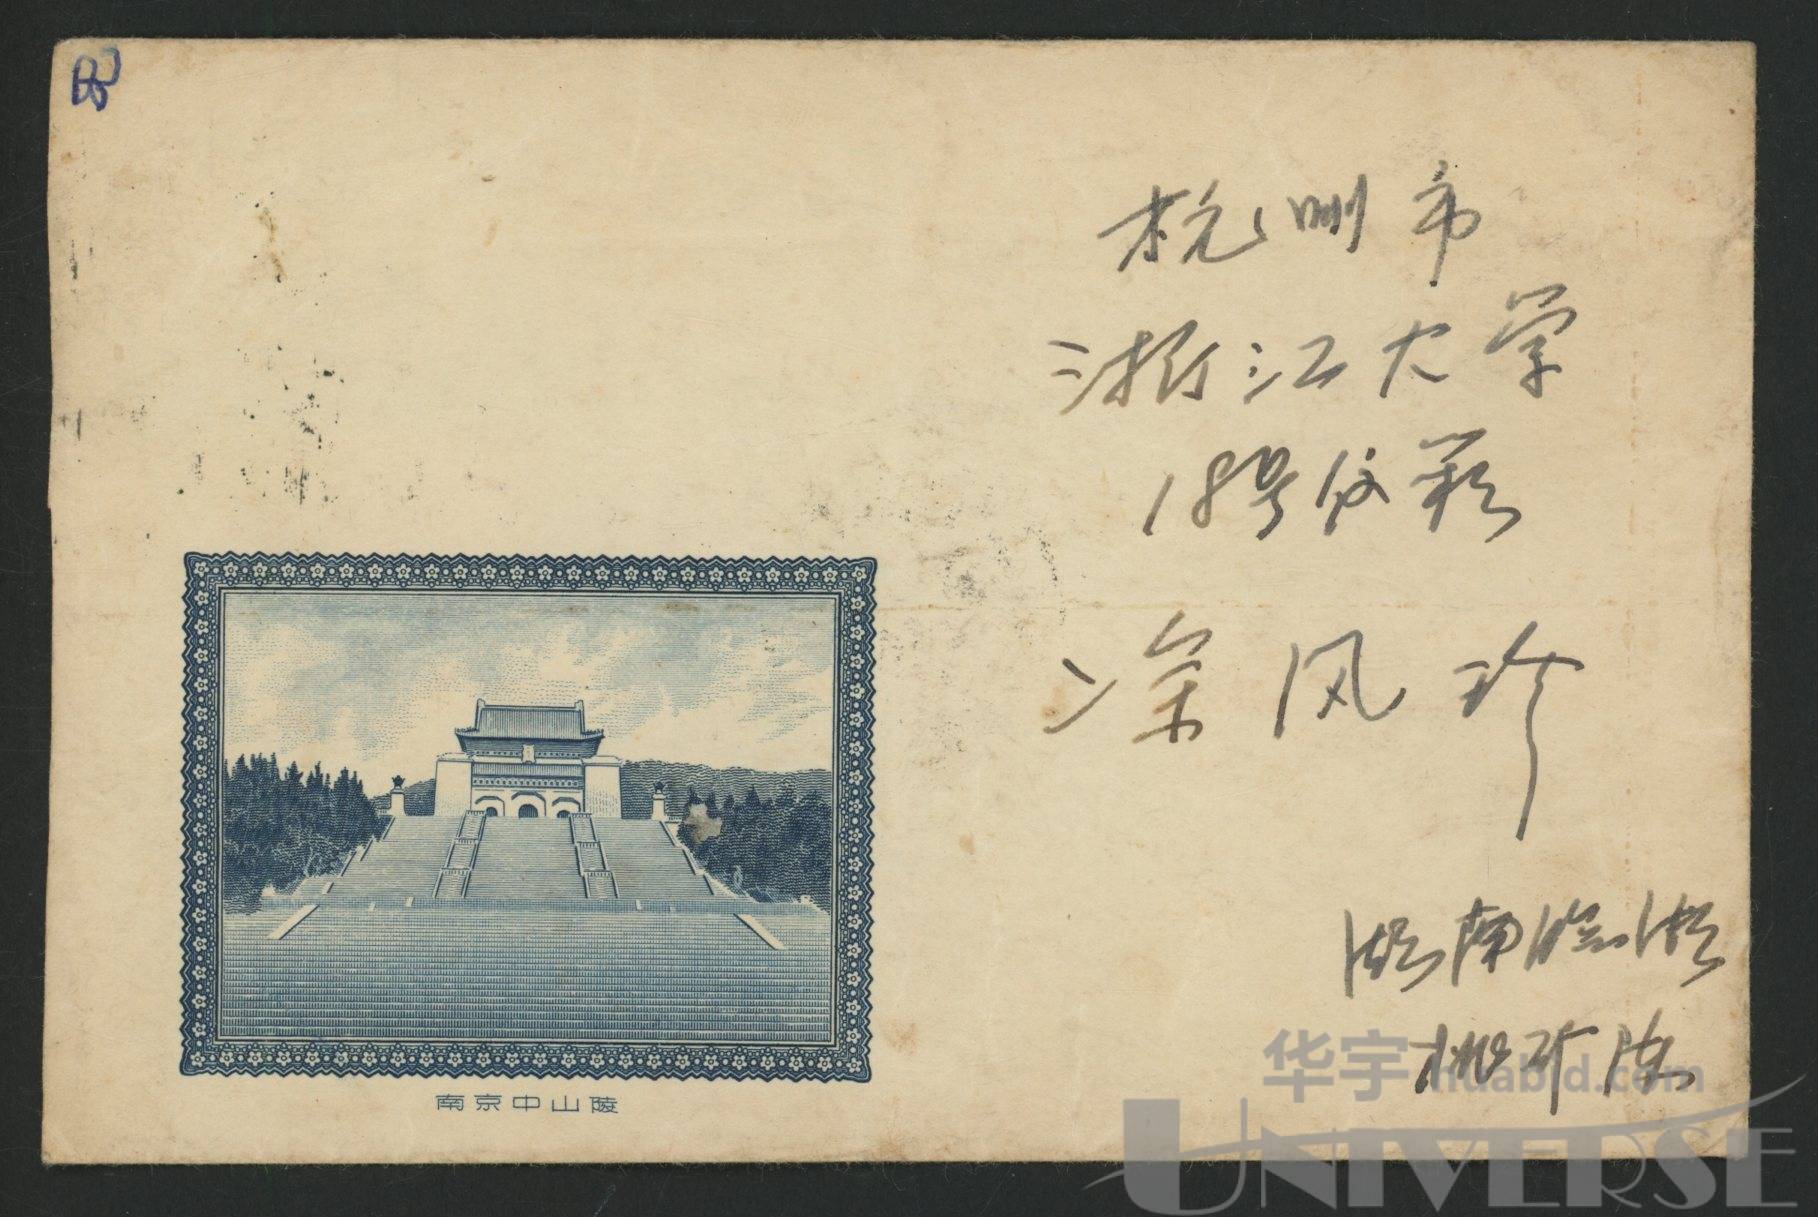 杭州市
浙江大学
18号信箱
梁风珍
湖南临湘
桃矿
南京中山陵
华宇
huabid.com
UNIVERSE